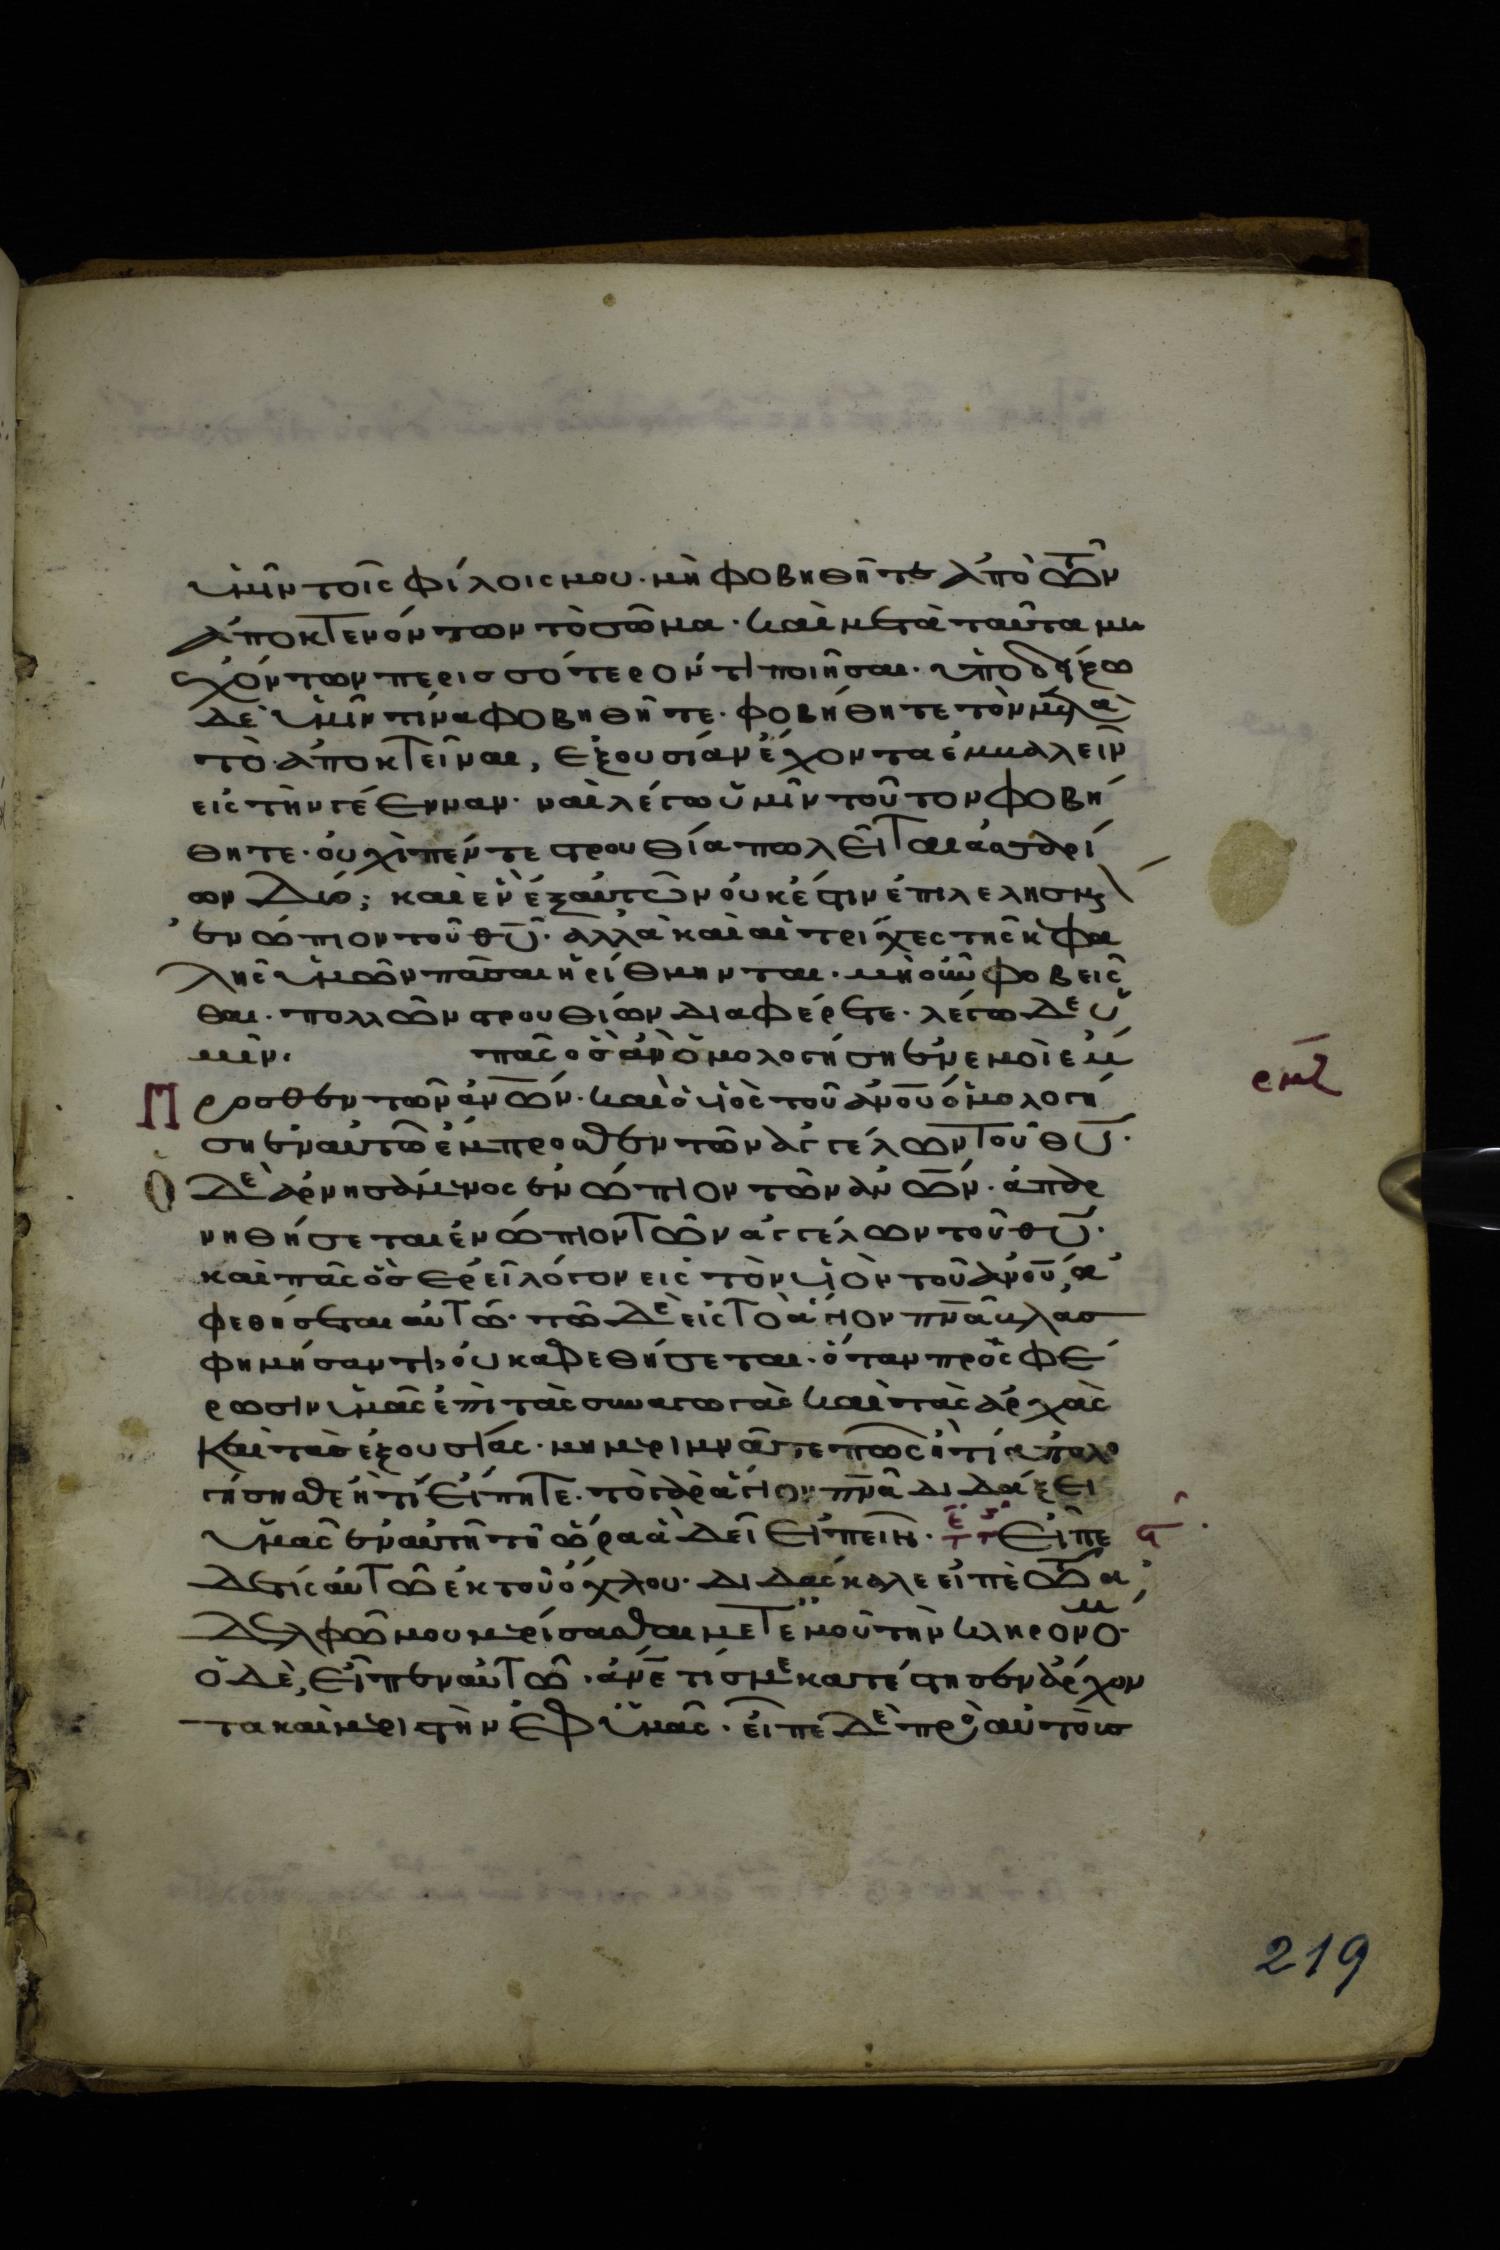 ὑμῖν τοῖς φίλοις μου· μὴ φοβηθῆτε ἀπὸ τῶν
ἀποκτενόντων τὸ σῶμα· καὶ μετὰ ταῦτα μὴ
ἐχόντων περισσότερόν τι ποιῆσαι· ὑποδείξω
δὲ ὑμῖν τίνα φοβηθῆτε· φοβήθητε τὸν μετὰ
τὸ ἀποκτεῖναι, ἐξουσίαν ἔχοντα ἐμβαλεῖν
εἰς τὴν γέενναν· ναὶ λέγω ὑμῖν τοῦτον φοβή
θητε· οὐχὶ πέντε στρουθία πωλεῖται ἀσσαρί
ων δύο; καὶ ἓν ἐξ αὐτῶν οὐκ ἔστιν ἐπιλελησμ
ἐνώπιον τοῦ θυ̅· ἀλλὰ καὶ αἱ τρίχες τῆς κεφα
λῆς ὑμῶν πᾶσαι ἠρίθμηνται· μὴ οὖν φοβεῖς
θαι· πολλῶν στρουθίων διαφέρετε· λέγω δὲ ὑ
μῖν· πᾶς ὃς ἂν ὁμολογήσῃ ἐν ἐμοὶ ἔμ
Προσθεν τῶν ἀν̅ων· καὶ ὁ υἱὸς τοῦ ἀν̅ου ὁμολογή
σῃ ἐν αὐτῶ ἔμπροσθεν τῶν ἀγγέλων τοῦ θυ̅·
Ὁ δὲ ἀρνησάμενος ἐνώπιον τῶν ἀν̅ων· ἀπαρ
νηθήσεται ἐνώπιον τῶν ἀγγέλων τοῦ θυ̅·
καὶ πᾶς ὃς ἐρεῖ λόγον εἰς τὸν υἱὸν τοῦ ἀν̅ου, ἀ
φεθήσεται αὐτῶ· τῶ δὲ εἰς τὸ ἅγιον πν̅α βλασ
φημήσαντι, οὐκ ἀφεθήσεται· ὅταν προσφέ
ρωσιν ὑμᾶς ἐπὶ τὰς συναγωγὰς καὶ τὰς ἀρχὰς
καὶ τὰς ἐξουσίας· μὴ μεριμνᾶτε πῶς ἢ τί ἀπολο
γήσησθε ἢ τί εἴπητε· τὸ γὰρ ἅγιον πν̅α διδάξει
ὑμᾶς ἐν αὐτῆ τῆ ὥρα ἃ δεῖ εἰπεῖν· εἶπε
δέ τις αὐτῶ ἐκ τοῦ ὄχλου· διδάσκαλε εἰπὲ τῶ ἀ
δελφῶ μου μερίσασθαι μετ' ἐμοῦ τὴν κληρονομ
ὁ δὲ, εἶπεν αὐτῶ· ἄν̅ε τίς με κατέστησεν ἄρχον
τα καὶ μεριστὴν ἐφ' ὑμᾶς· εἶπε δὲ πρὸς αὐτούς
219